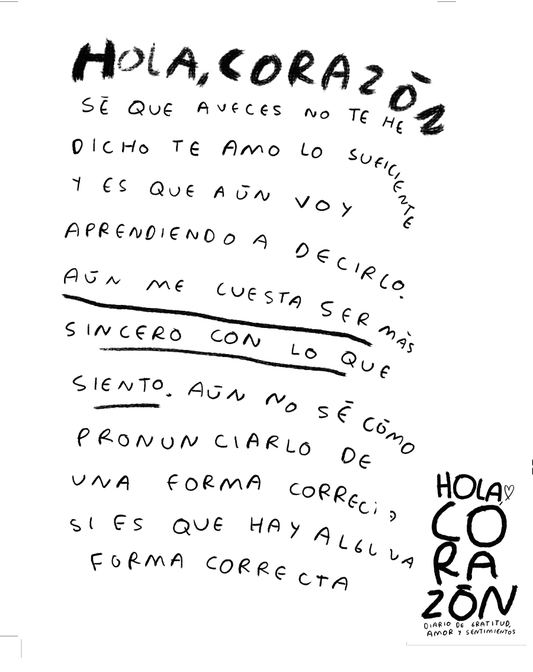 HOLA, CORAZŌN
SĒ QUE AVECES NO TE HE
DICHO TE AMO LO SUFICIENTE
Y ES QUE AŪN VOY
APRENDIENDO A DECIRLO.
AŪN ME CUESTA SER MÁS
SINCERO CON LO QUE
SIENTO. AŪN NO SĒ CŌMO
PRONUNCIARLO DE
UNA FORMA CORRECi,
SI ES QUE HAY ALGUVA
FORMA CORRECTA
HOLA,
CO
RA
ZŌN
DIARIO DE GRATITUD,
AMOR Y SENTIMIENTOS